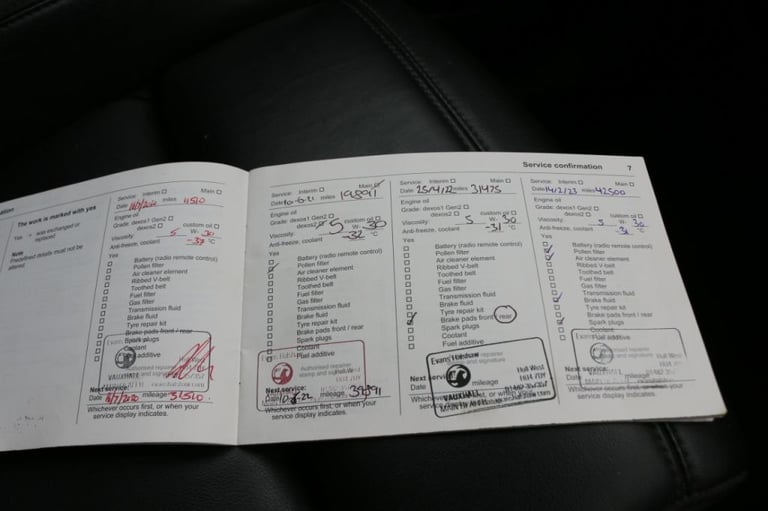 The work is marked with yes
Yes = was exchanged or
replaced
Note
Predefined details must not be
altered
Service: Interim Main
Date miles 11510
Engine oil
Grade: dexos1 Gen2
dexos2 custom oil
Viscosity 5 W- 30
Anti-freeze, coolant °C
Yes
Battery (radio remote control)
Pollen filter
Air cleaner element
Ribbed V-belt
Toothed belt
Fuel filter
Gas filter
Transmission fluid
Brake fluid
Tyre repair kit
Brake pads front / rear
Spark plugs
Coolant
Fuel additive
VAUXHALL
Next service:
Date mileage 31510
Whichever occurs first, or when your
service display indicates.
Service confirmation 7
Service: Interim Main
Date 10-6-21 miles
Engine oil
Grade: dexos1 Gen2
dexos2 custom oil
Viscosity 5 W- 30
Anti-freeze, coolant -32 °C
Yes
Battery (radio remote control)
Pollen filter
Air cleaner element
Ribbed V-belt
Toothed belt
Fuel filter
Gas filter
Transmission fluid
Brake fluid
Tyre repair kit
Brake pads front / rear
Spark plugs
Coolant
Fuel additive
Authorised repairer
stamp and signature
Next service:
Date mileage
Whichever occurs first, or when your
service display indicates.
Service: Interim Main
Date 25/4/22 miles 31475
Engine oil
Grade: dexos1 Gen2
dexos2 custom oil
Viscosity 5 W- 30
Anti-freeze, coolant -31 °C
Yes
Battery (radio remote control)
Pollen filter
Air cleaner element
Ribbed V-belt
Toothed belt
Fuel filter
Gas filter
Transmission fluid
Brake fluid
Tyre repair kit
Brake pads front / rear
Spark plugs
Coolant
Fuel additive
Evans Halshaw
Hull West
VAUXHALL
Next service:
Date mileage
Whichever occurs first, or when your
service display indicates.
Service: Interim Main
Date 14/2/23 miles 42500
Engine oil
Grade: dexos1 Gen2
dexos2 custom oil
Viscosity 5 W- 30
Anti-freeze, coolant °C
Yes
Battery (radio remote control)
Pollen filter
Air cleaner element
Ribbed V-belt
Toothed belt
Fuel filter
Gas filter
Transmission fluid
Brake fluid
Tyre repair kit
Brake pads front / rear
Spark plugs
Coolant
Fuel additive
Next service:
Date mileage
Whichever occurs first, or when your
service display indicates.